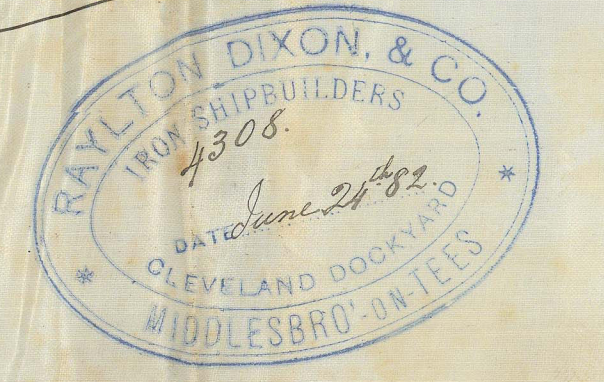 RAYLTON DIXON, & CO.
IRON SHIPBUILDERS
4308.
DATE June 24th 82.
CLEVELAND DOCKYARD
MIDDLESBRO'-ON-TEES